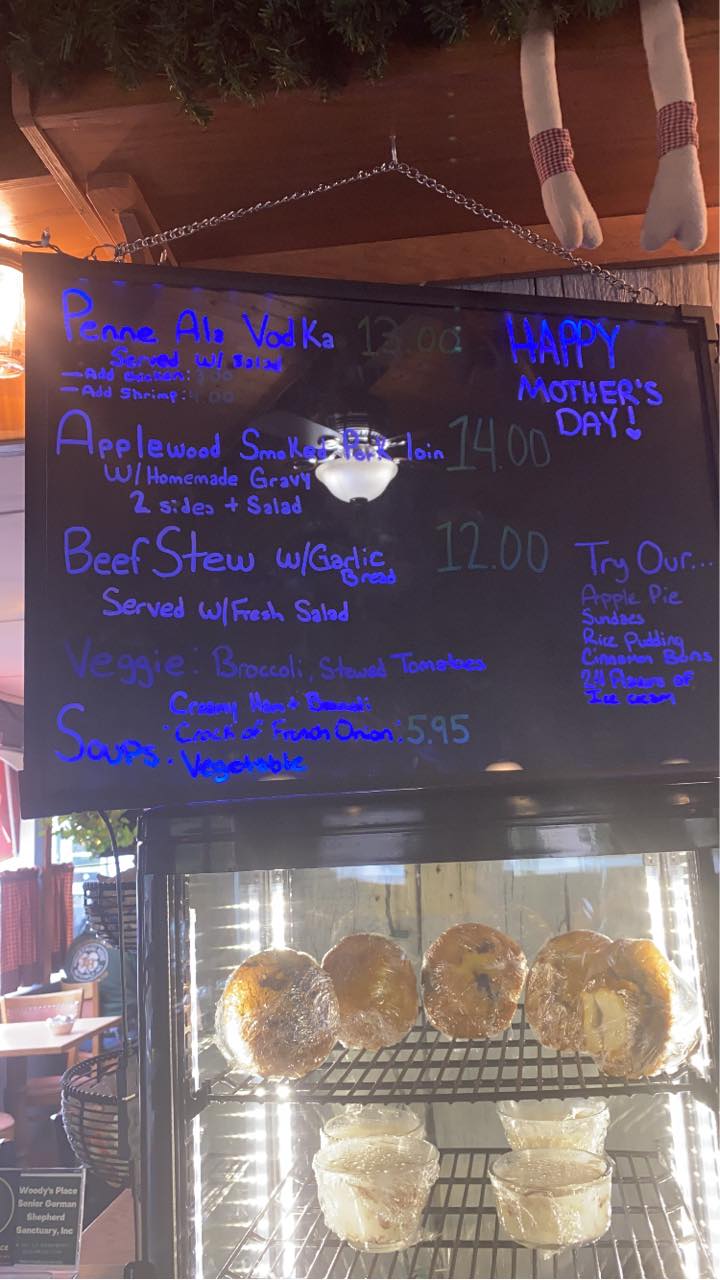 Penne Ala Vodka 13.00
Served W/ Salad
— Add Chicken: 3.50
— Add Shrimp: 4.00
Applewood Smoked Pork loin 14.00
W/ Homemade Gravy
2 sides + Salad
Beef Stew w/Garlic Bread 12.00
Served W/Fresh Salad
Veggie: Broccoli, Stewed Tomatoes
Soups:
Creamy Ham + Broccoli
• Crock of French Onion: 5.95
• Vegetable
HAPPY
MOTHER'S
DAY!
Try Our...
Apple Pie
Sundaes
Rice Pudding
Cinnamon Buns
24 Flavors of
Ice cream
Woody's Place
Senior German
Shepherd
Sanctuary, Inc